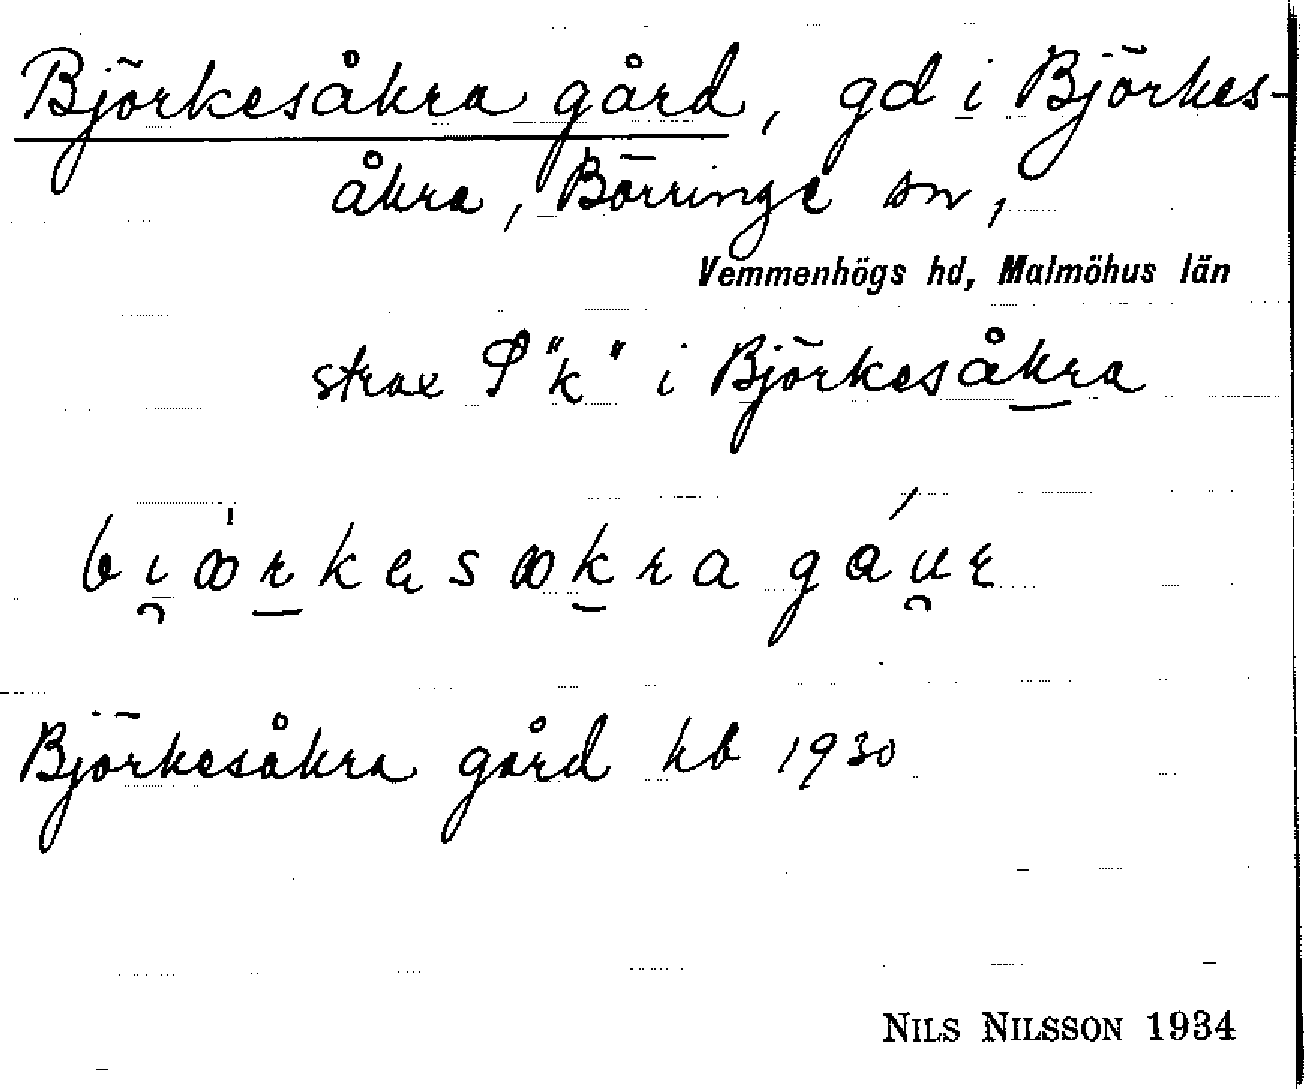 Björkesåkra gård, gd i Björkes-
åkra, Börringe sn,
Vemmenhögs hd, Malmöhus län
strax "k" i Björkesåkra
Björkesåkra gård kb 1930
NILS NILSSON 1934